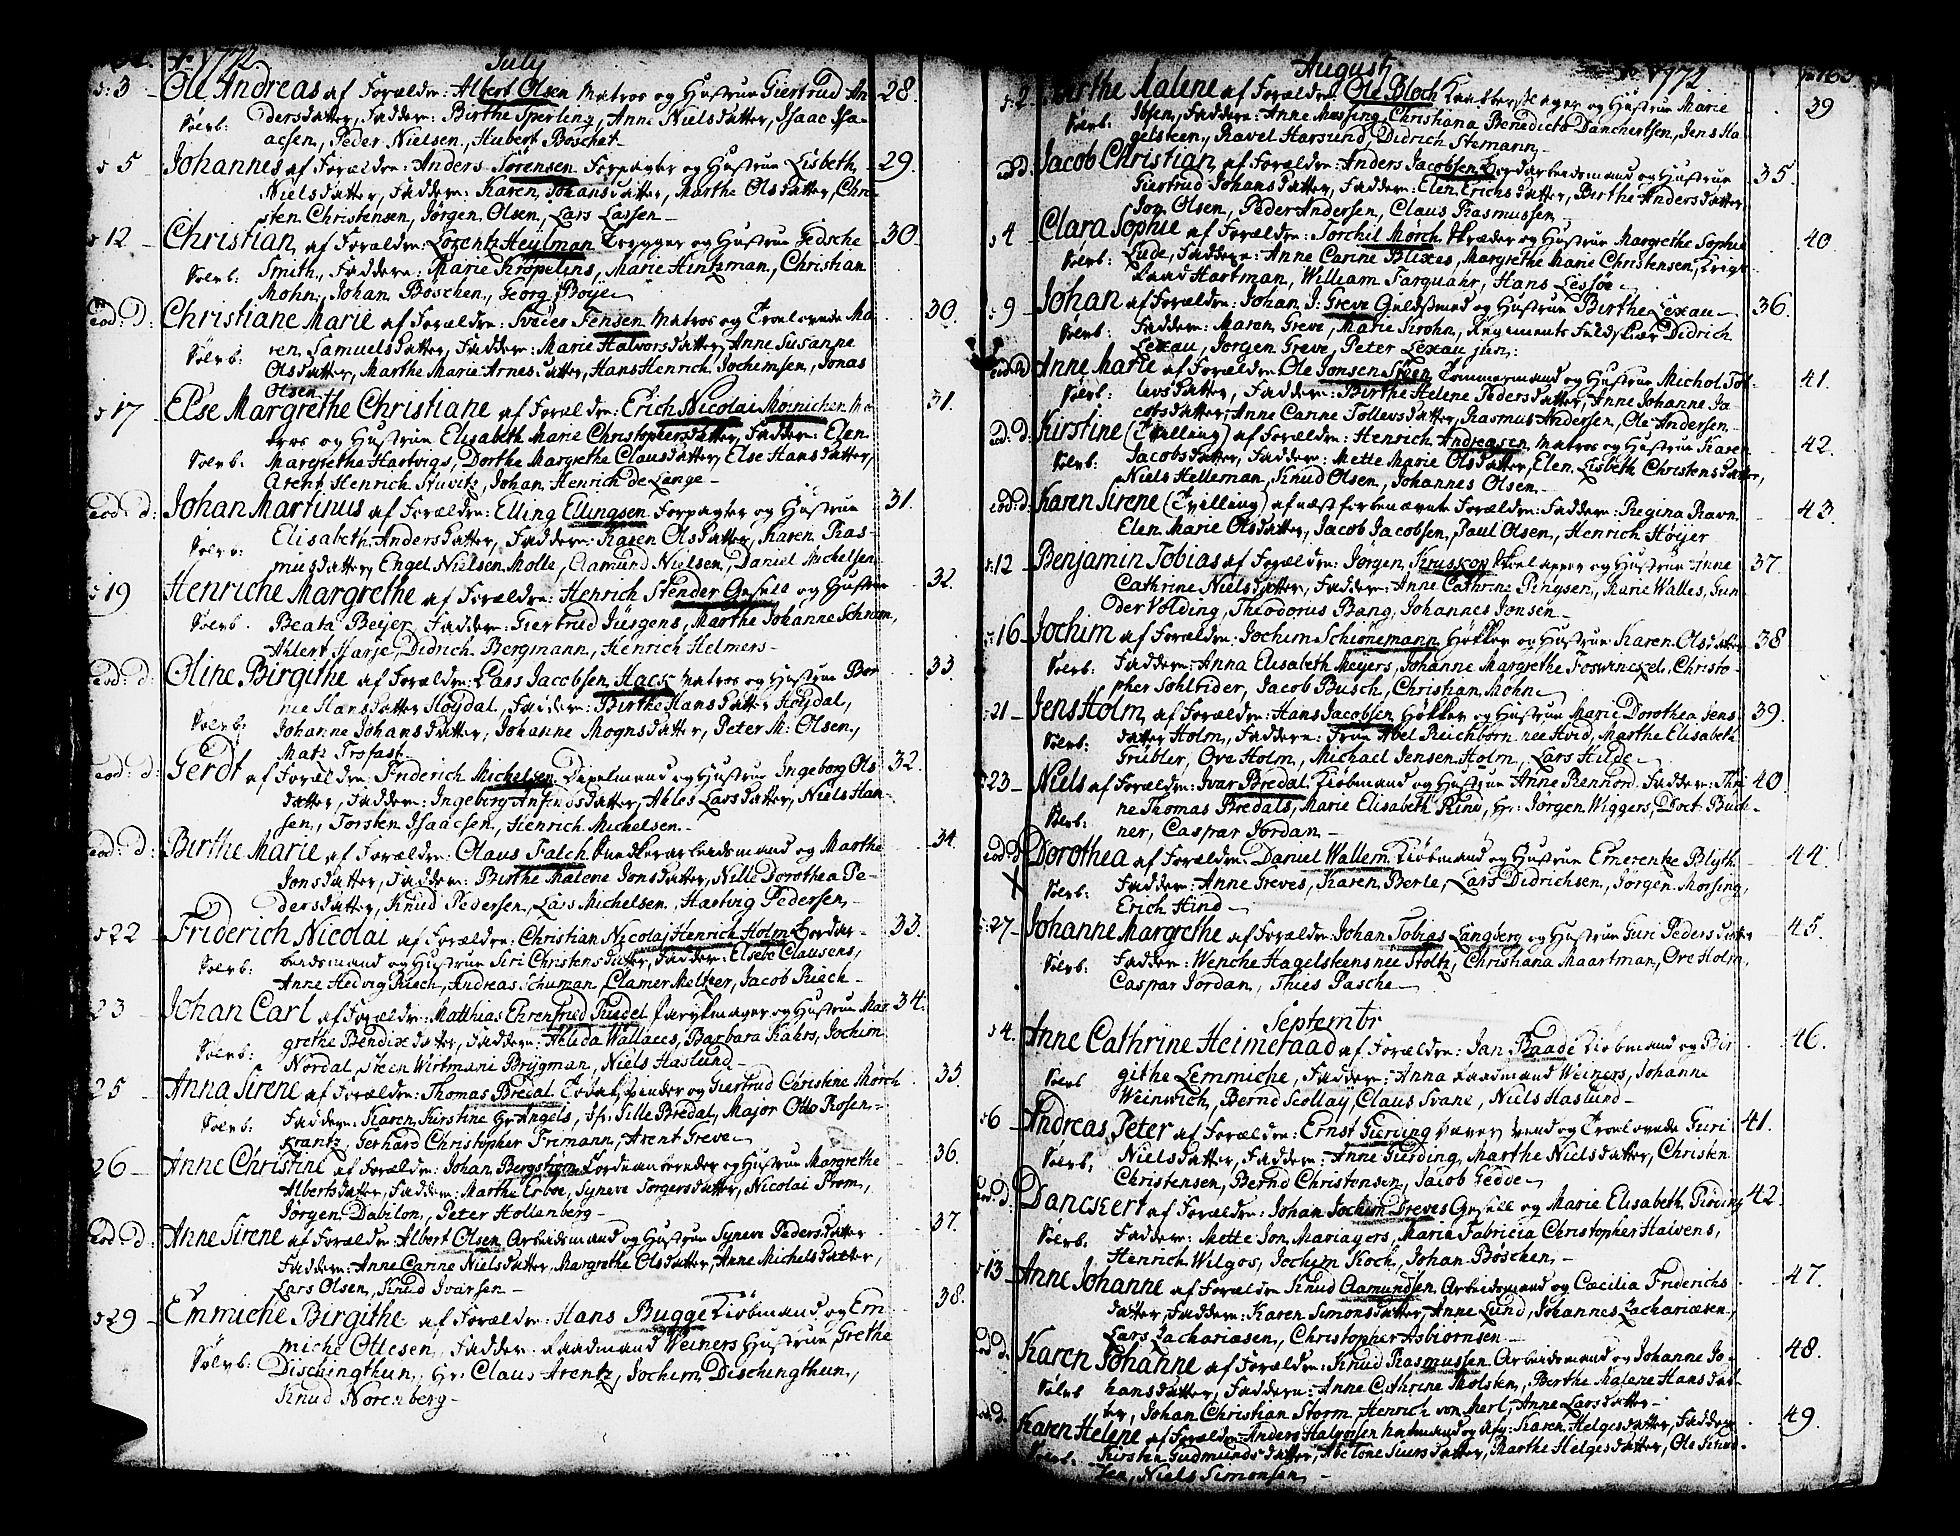 Ao 1772. July
d: 3 Ole Andreas af Forældre: Albert Olsen Matros og Hustrue Giertrud An- 28.
Sølvb: dersdatter, Faddere: Birthe Sperling, Anne Nielsdatter, Isaac Isa-
acsen, Peder Nielsen, Hubert Böschet
d 5 Johannes af Forældre: Anders Sörensen Forpagter og Hustrue Lisbeth 29.
Nielsdatter, Faddere: Karen Johansdatter, Marthe Olsdatter, Chri-
sten Christensen, Jörgen Olsen, Lars Lassen
d 12 Christian, af Forældre: Lorentz Heylman og Hustrue Gedsche 30.
Sølvb: Smith, Faddere: Marie Kröpelins, Marie Hintzman, Christian
Mohn, Johan Böschen, Georg Böye
eod: d: Christiane Marie af Forældre: Sveier Jensen Matros og Trolovede Ma- 30.
Sølvb: ren Samuelsdatter, Faddere: Marie Halvorsdatter, Anne Susanne
Olsdatter, Marthe Marie Arnesdatter, Hans Henrich Jochimsen, Jonas
Olsen
d 17 Else Margrethe Christiane af Forældre: Erich Nicolai Mörnichen Ma- 31.
tros og Hustrue Elisabeth Marie Christophersdatter, Faddere: Elen
Sølvb: Margrethe Hartvigs, Dorthe Margrethe Clausdatter, Else Hansdatter,
Arent Henrich Stuvitz, Johan Henrich de Lange
eod: d: Johan Martinus af Forældre: Elling Ellingsen Forpagter og Hustrue 31.
Elisabeth Andersdatter, Faddere: Karen Olsdatter, Karen Ras-
Sølvb: musdatter, Engel Nielsen Molle, Aamund Nielsen, Daniel Michelsen
d 19 Henriche Margrethe af Forældre: Henrich Stender Gesell og Hustrue 32.
Sølvb. Beata Beyer, Faddere: Giertrud Jürgens, Marthe Johanne Schram,
Ahlert Harje, Didrich Bergmann, Henrich Helmers
eod: d: Oline Birgithe af Forældre: Lars Jacobsen Hack Matros og Hustrue Ber- 33.
Hansdatter Höydal, Faddere: Birthe Hansdatter Höydal,
Sølvb: Johanne Johansdatter, Johanne Mognsdatter, Peter M: Olsen,
Matz Trofast
eod: d: Gerdt af Forældre: Friderich Michelsen og Hustrue Ingeborg Ols- 32.
datter, Faddere: Ingeborg Anfindsdatter, Ahles Larsdatter, Niels Han-
sen, Torsten Isaacsen, Henrich Michelsen
eod: d: Birthe Marie af Forældre: Claus Falch Snedkerarbeidsmand og Marthe 34.
Jonsdatter, Faddere: Birthe Malene Jonsdatter, Nille Dorothea Pe-
dersdatter, Knud Pedersen, Lars Michelsen, Hartvig Pedersen
d 22 Friderich Nicolai af Forældre: Christian Nicolai Henrich Holm Bordar- 33.
Sølvb: beidsmand og Hustrue Siri Christensdatter, Faddere: Elsebe Clausens,
Anne Hedvig Riech, Andreas Schuman, Clamer Meltzer, Jacob Riech
23 Johan Carl af Forældre: Matthias Ehrenfried Riedel Parykmager og Hustrue Mar- 34.
Sølvb: grethe Bendixdatter, Faddere: Alida Wallaces, Barbara Kahrs, Jochim
Nordal, Steen Wirtmann Brÿgman, Niels Haslund
25 Anna Sirene af Forældre: Thomas Bredal og Giertrud Christine Mörch 35.
Sølvb: Faddere: Karen Kirstine Gr: Angels, Jfr: Sille Bredal, Major Otto Rosen-
krantz, Gerhard Christopher Frimann, Arent Greve
26 Anne Christine af Forældre: Johan Bergström og Hustrue Margrethe 36.
Albertsdatter, Faddere: Marthe Erboe, Syneve Torgersdatter, Nicolai From,
Jörgen Dabilon, Peter Hollenberg
eod: d: Anne Sirene af Forældre: Albert Olsen Arbeidsmand og Hustrue Syneve Pedersdatter 37.
Faddere: Anne Carine Nielsdatter, Margrethe Olsdatter, Anne Michelsdatter,
Lars Olsen, Knud Ivarsen
d 29 Emmiche Birgithe af Forældre: Hans Bugge Kiøbmand og Em- 38.
miche Ottesen, Faddere: Raadmand Weiners Hustrue, Grethe
Sølvb: Dischingthun, Hr: Claus Arentz, Jochim Dischingthun,
Knud Norenberg
August Ao 1772
d: 2 Birthe Malene af Forældre: Ole Bloch og Hustrue Marie 39
Sølvb: Ibsen, Faddere: Anne Massing, Christiana Benedicto Danchertsen, Jens Ha-
gelsteen, Ravel Harsund, Didrich Stemann
eod: d. Jacob Christian, af Forældre: Anders Jacobsen Bordarbeidsmand og Hustrue 35.
Giertrud Johansdatter, Faddere: Elen Erichsdatter, Birthe Andersdatter
Jon Olsen, Peder Andersen, Claus Rasmussen
d 4 Clara Sophie af Forældre: Torchil Mörch Skræder og Hustrue Margrethe Sophie 40
Sølvb: Lude, Faddere: Anne Carine Blixes, Margrethe Marie Christensen, Krigs-
Raad Hartman, William Farquahr, Hans Lessöe
d: 9 Johan af Forældre: Johan J: Greve Guldsmed og Hustrue Birthe Lexau 36.
Sølvb: Faddere: Maren Greve, Marie Krohn, Regiments Feldskiær Didrich
Lexau, Jörgen Greve, Peter Lexau jun:
eod: d Anne Marie af Forældre: Ole Jonsen Steen Tommermand og Hustrue Michol Tol- 41.
Sølvb: levsdatter, Faddere: Birthe Helene Pedersdatter, Anne Johanne Ja-
cobsdatter, Anne Carine Tollevsdatter, Rasmus Andersen, Ole Andersen
eod: d: Kirstine (Tvilling) af Forældre: Henrich Andreasen Matros og Hustrue Karen 42.
Sølvb: Jacobsdatter, Faddere: Mette Marie Olsdatter, Elen Lisbeth Christensdatter,
Niels Helleman, Knud Olsen, Johannes Olsen
eod: d: Karen Sirene (Tvilling) af næst forbenævnte Forældre: Faddere: Regina Ravn 43.
Elen Marie Olsdatter, Jacob Jacobsen, Paul Olsen, Henrich Höyer
d: 12 Benjamin Tobias af Forældre: Jörgen Kruskop og Hustrue Anne 37.
Cathrine Nielsdatter, Faddere: Anne Cathrine Pingsen, Marie Walles, Gun-
der Volding, Theodorus Bang, Johannes Jonsen
d: 16 Jochim af Forældre: Jochim Schiönemann Høkker og Hustrue Karen Olsdatter 38
Sølvb: Faddere: Anna Elisabeth Meyers, Johanne Margrethe Foswinckel, Christo-
pher Sohltider, Jacob Busch, Christian Mohn
d: 21 Jens Holm, af Forældre: Hans Jacobsen Høkker og Hustrue Marie Dorothea Jens- 39.
Sølvb: datter Holm, Faddere: Frue Abel Reichborn nee Hvid, Marthe Elisabeth
Grübler, Ove Holm, Michael Jensen Holm, Lars Hilde
d: 23 Niels af Forældre: Ivar Bredal Kiøbmand og Hustrue Anne Rennord. Faddere: Thri- 40
Sølvb: ne Thomas Bredals, Marie Elisabeth Rind, Hr: Jörgen Wiggers, Doct: Büch-
ner, Caspar Jordan
eod d Dorothea af Forældre: Daniel Wallem Kiøbmand og Hustrue Emerentze Blyth 44.
Sølvb: Faddere: Anne Greves, Karen Berle, Lars Didrichsen, Jörgen Morsing,
Erich Hind
d: 27 Johanne Margrethe af Forældre: Johan Tobias Langberg og Hustrue Guri Pedersdatter 45.
Sølvb: Faddere: Wenche Hagelsteens nee Stoltz, Christiana Maartman, Ove Holm,
Caspar Jordan, Thies Pasche
Septembr
d 4. Anne Cathrine Heimeraad af Forældre: Jan Baade Kiøbmand og Bir- 46.
Sølvb githe Lemmiche, Faddere: Anna Raadmand Weiners, Johanne
Weinwich, Bernd Scollay, Claus Svane, Niels Haslund
d 6 Andreas Peter af Forældre: Ernst Gierding og Trolovede Guri 41.
Sølvb, Nielsdatter, Faddere: Anne Gierding, Marthe Nielsdatter, Christen
Christensen, Bernd Christensen, Jacob Gedde
eod: d. Danckert af Forældre: Johan Jochim Dreves Gesell og Marie Elisabeth Riding 42.
Sølvb. Faddere: Mette Jon Mariagers, Marie Fabricia Christopher Haivens,
Henrich Wilgos, Jochim Koch, Johan Böschen
d 13 Anne Johanne af Forældre Knud Aamundsen Arbeidsmand og Cæcilia Friderichs- 47.
datter, Faddere: Karen Simonsdatter, Anne Lund, Johannes Zachariæsen,
Lars Zachariæsen, Christopher Asbiörnsen
eod d. Karen Johanne af Forældre: Knud Rasmussen Arbeidsmand og Johanne Jo- 48.
Sølvb hansdatter, Faddere: Anne Cathrine Tholsten, Berthe Malene Hansdat-
ter, Johan Christian Storm, Henrich von Merl, Anne Larsdatter
eod: d. Karen Helene af Forældre: Anders Halvorsen og Karen Helgesdatter, Faddere 49.
Sølvb: Kirsten Gudmundsdatter, Abelone Siursdatter, Marthe Helgesdatter, Ole Knud-
sen, Niels Simonsen